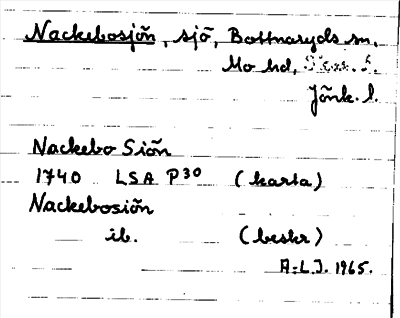 Nackebosjön, sjö, Bottnaryds sn,
Mo hd,
Jönk. l.
Nackebo Siön
1740 LSA P30 (karta)
Nackebosiön
ib. (beskr)
A.L.J. 1965.